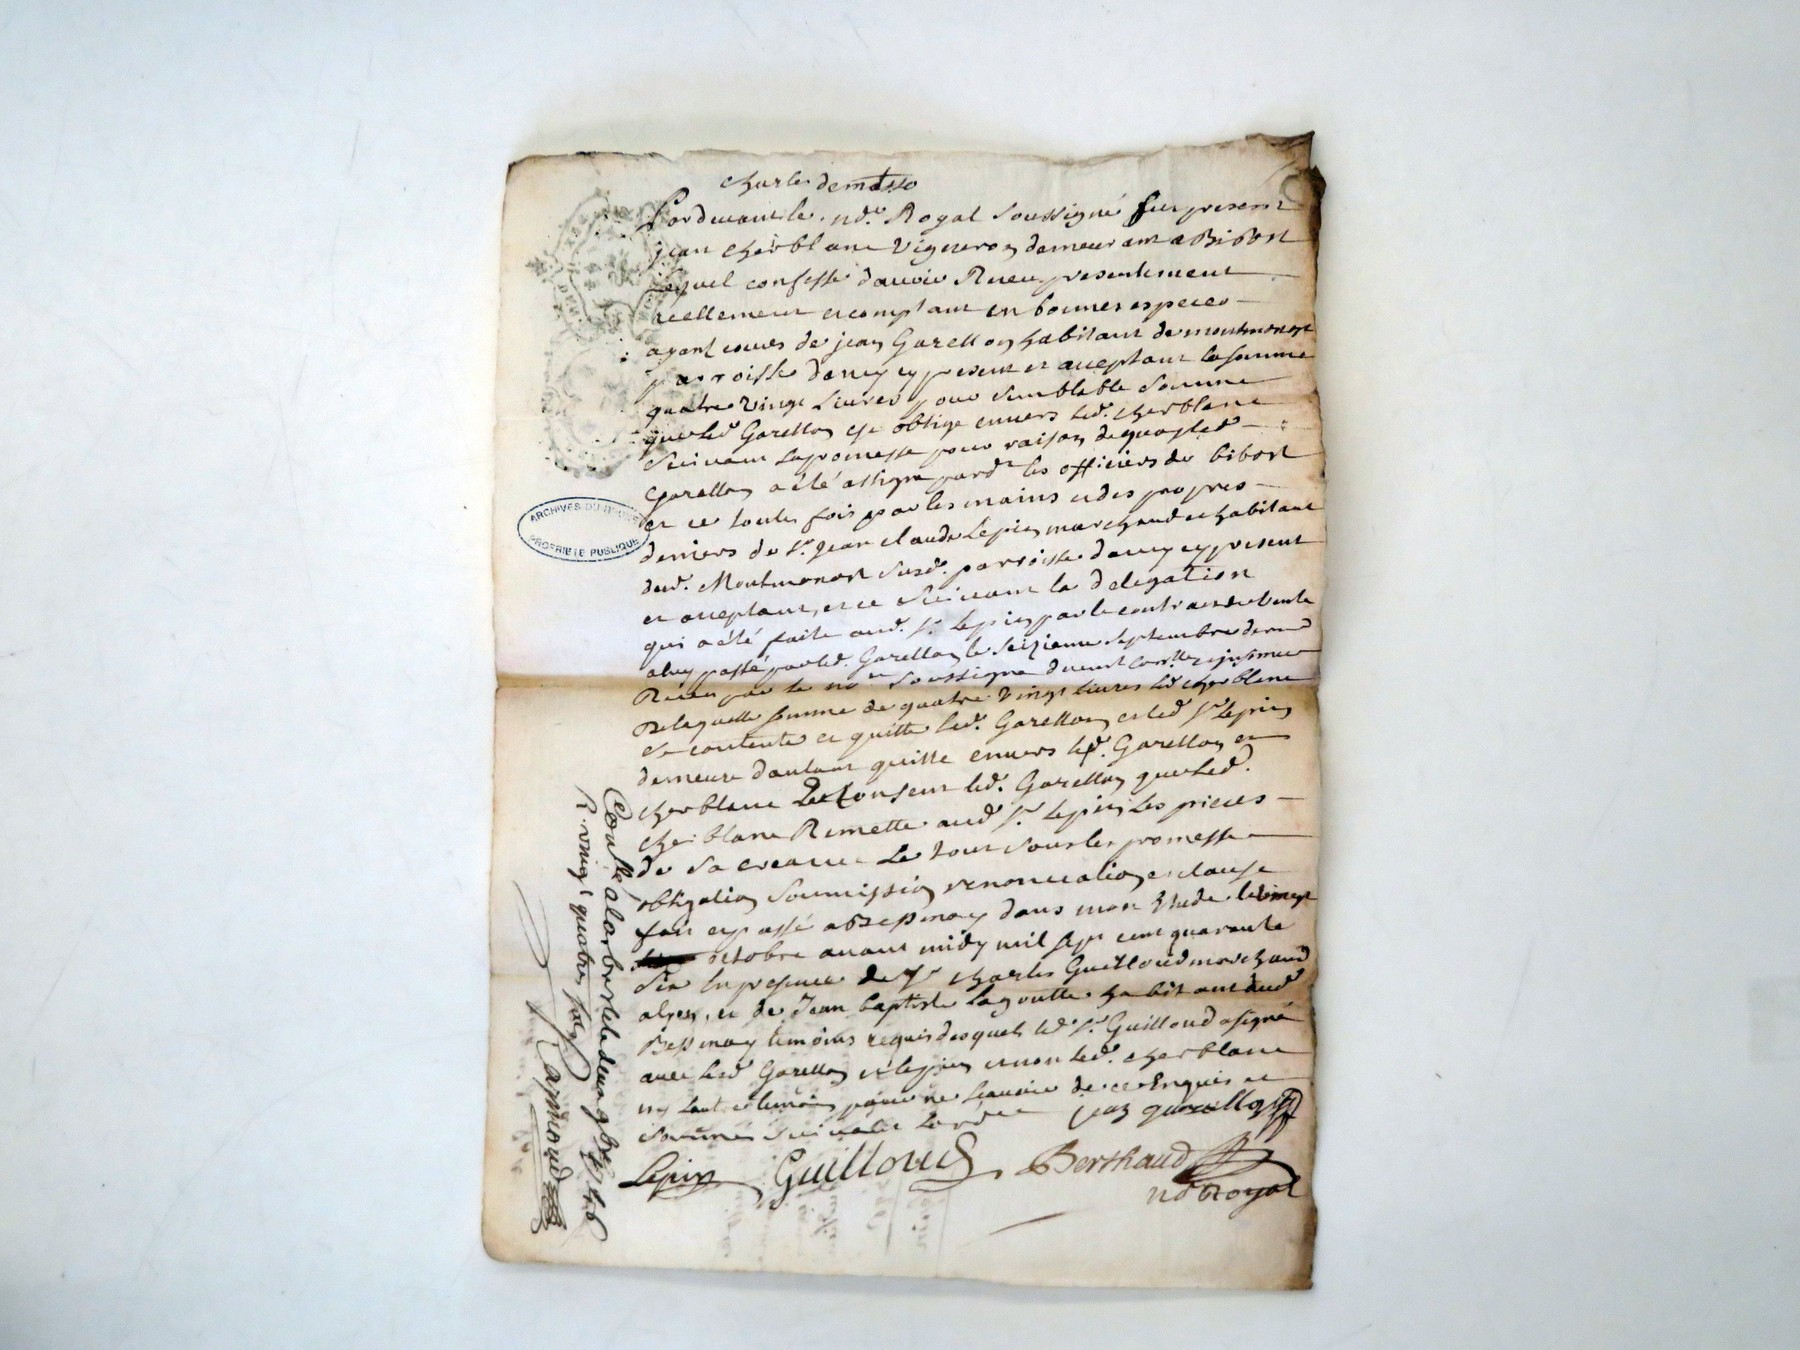 Charles demasso
Pardevant le no.re Royal soussigné fut present
jean cherblanc vigneron demeurant a Bibost
lequel confesse davoir Receu presentement
reellement et comptant en bonnes especes
ayant cours de jean Garellon habitant de montmonost
parroisse dancy cy present et acceptant la somme
quatre vingt livres pour semblable somme
que led. Garellon est obligé envers led. cherblanc
suivant la promesse pour raison de quoy led
Garellon a été assigné pard.t les officiers de bibost
et ce toutes fois par les mains et des propres
deniers de Sr jean claude Lepin marchand et habitant
dud. Montmonost susd. parroisse dancy cy present
et acceptant, et ce suivant la delegation
qui a été faite aud. Sr Lepin par le contract de vente
a luy passé par led. Garellon le seizieme septembre dernier
Receu par le no.re soussigné
De laquelle somme de quatre vingt livres led cherblanc
se contente et quitte led. Garellon et led Sr Lepin
demeure dautant quitte envers led. Garellon et
cherblanc consent led. Garellon que led.
cherblanc Remette aud Sr Lepin les pieces
de sa creance Le tout sous les promesse
obligation soumission renonciation et clause
fait et passé a Bessenay dans mon Etude le vingt
octobre avant midy mil sept cent quarante
six En presence de Sr charles Guilloud marchand
et de Jean baptiste Lagoutte habitant dud
Bessenay temoins requis desquels led Sr Guilloud a signé
avec led Garellon et lepin et non led. cherblanc
ny laut.e temoin pour ne scavoir de ce Enquis et
sommés suivant Lord.ce jean garellon
Lepin Guilloud Berthaud
no.re Royal
ARCHIVES D
PROPRIETE PUBLIQUE
Conlé a larbresle le deux 9bre 1746
R. vingt quatre sols